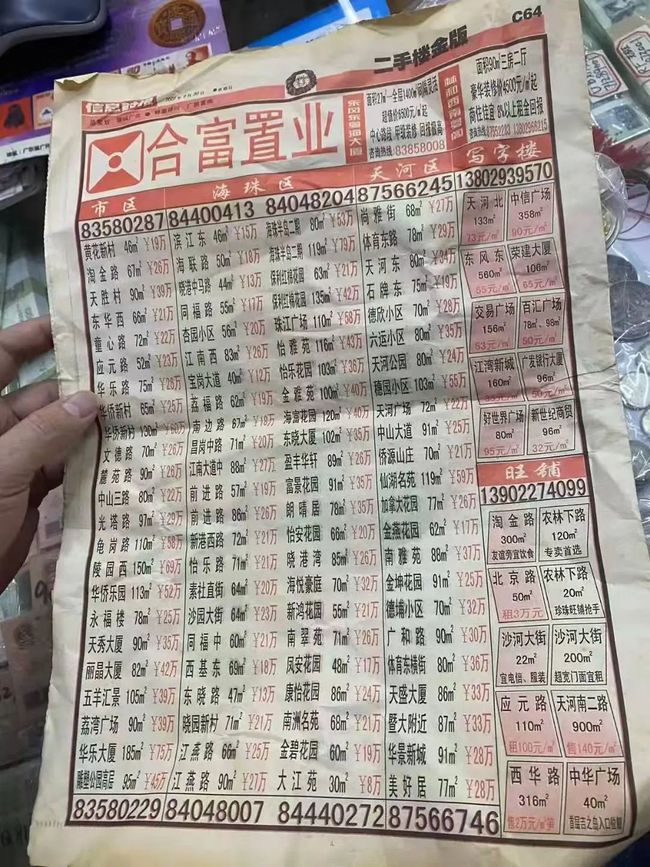 C64
二手楼金版
信息时报
合富置业
东风东粤海大厦
咨询热线:83858008
面积90㎡三房二厅
豪华装修价4500元/㎡起
商住佳宜 8%以上租金回报
市区
海珠区
天河区
写字楼
83580287
84400413 84048204
87566245
13802939570
黄花新村 46㎡ ¥19万
淘金路 67㎡ ¥26万
天胜村 90㎡ ¥39万
东华西 66㎡ ¥21万
童心路 72㎡ ¥22万
应元路 52㎡ ¥23万
华乐路 75㎡ ¥26万
华侨新村 65㎡ ¥25万
华侨新村 130㎡ ¥60万
文德路 70㎡ ¥26万
麓苑路 90㎡ ¥26万
中山三路 80㎡ ¥22万
光塔路 97㎡ ¥29万
龟岗路 110㎡ ¥38万
陵园西 150㎡ ¥69万
华侨乐园 113㎡ ¥52万
永福楼 78㎡ ¥25万
天秀大厦 90㎡ ¥35万
丽晶大厦 82㎡ ¥42万
五羊汇景 105㎡ ¥39万
荔湾广场 90㎡ ¥39万
华乐大厦 185㎡ ¥75万
雕塑公园高层 95㎡ ¥45万
滨江东 46㎡ ¥15万
海联路 50㎡ ¥18万
晓港中马路 44㎡ ¥13万
同福路 55㎡ ¥17万
杏园小区 56㎡ ¥20万
江南西 83㎡ ¥26万
宝岗大道 40㎡ ¥12万
荔福路 62㎡ ¥19万
南边路 67㎡ ¥18万
昌岗中路 71㎡ ¥20万
江南大道中 88㎡ ¥27万
前进路 57㎡ ¥19万
前进路 86㎡ ¥26万
新港西路 72㎡ ¥21万
怡乐路 71㎡ ¥21万
素社直街 64㎡ ¥20万
沙园大街 64㎡ ¥23万
同福中 60㎡ ¥21万
西基东 69㎡ ¥18万
东晓路 47㎡ ¥13万
晓园新村 71㎡ ¥21万
江燕路 66㎡ ¥25万
江燕路 90㎡ ¥27万
海珠半岛二期 80㎡ ¥53万
海珠半岛二期 119㎡ ¥79万
保利红棉花园 63㎡ ¥21万
保利红棉花园 135㎡ ¥42万
珠江广场 110㎡ ¥58万
怡雅苑 116㎡ ¥43万
怡乐花园 103㎡ ¥36万
金雅苑 100㎡ ¥40万
海富花园 120㎡ ¥40万
东晓大厦 102㎡ ¥35万
盈丰华轩 89㎡ ¥26万
富景花园 91㎡ ¥35万
朗晴居 78㎡ ¥35万
怡安花园 66㎡ ¥20万
晓港湾 85㎡ ¥26万
海悦豪庭 70㎡ ¥32万
新鸿花园 55㎡ ¥21万
南翠苑 71㎡ ¥26万
凤安花园 48㎡ ¥17万
康怡花园 86㎡ ¥24万
南洲名苑 68㎡ ¥21万
金碧花园 60㎡ ¥19万
大江苑 30㎡ ¥8万
尚雅街 68㎡ ¥27万
体育东路 78㎡ ¥29万
天河东 80㎡ ¥34万
石牌东 76㎡ ¥19万
德欣小区 70㎡ ¥28万
六运小区 80㎡ ¥35万
天河公园 80㎡ ¥24万
穗园小区 103㎡ ¥55万
天河广场 72㎡ ¥22万
中山大道 91㎡ ¥25万
侨源山庄 70㎡ ¥21万
仙湖名苑 119㎡ ¥59万
加拿大花园 77㎡ ¥26万
金燕花园 62㎡ ¥17万
南雅苑 88㎡ ¥37万
金坤花园 91㎡ ¥25万
德埔小区 70㎡ ¥32万
广和路 90㎡ ¥30万
体育东横街 80㎡ ¥36万
天盛大厦 86㎡ ¥33万
暨大附近 87㎡ ¥33万
华景新城 91㎡ ¥28万
美好居 77㎡ ¥28万
天河北
133㎡
73元/㎡
中信广场
358㎡
90元/㎡
东风东
560㎡
65元/㎡
荣建大厦
106㎡
65元/㎡
交易广场
156㎡
53元/㎡
百汇广场
78㎡、98㎡
50元/㎡
江湾新城
160㎡
广发银行大厦
96㎡
好世界广场
80㎡
95元/㎡
新世纪商贸
96㎡
32元/㎡
旺铺
13902274099
淘金路
300㎡
友谊旁宜饮食
农林下路
120㎡
专卖首选
北京路
50㎡
租3万元
农林下路
20㎡
珍珠旺铺抢手
沙河大街
22㎡
宜电信、服装
沙河大街
200㎡
超宽门面宜租
应元路
110㎡
租100元/㎡
天河南二路
900㎡
售140元/㎡
西华路
316㎡
售2万元/㎡
中华广场
40㎡
首层吉之岛入口位
83580229
84048007 84440272
87566746